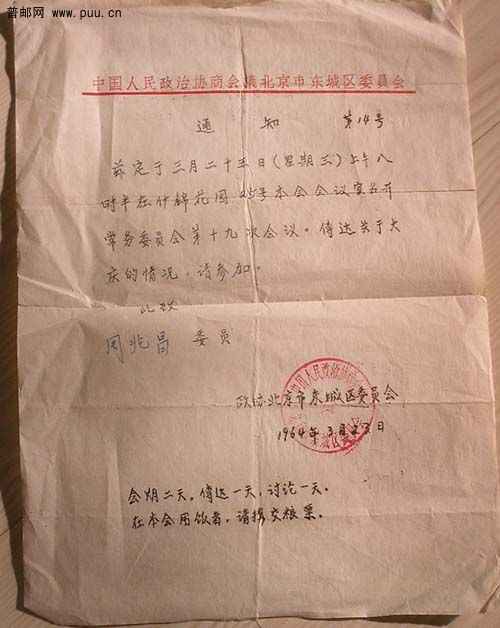 普邮网 www.puu.cn
中国人民政治协商会议北京市东城区委员会
通知 第14号
兹定于三月二十五日(星期三)上午八
时半在什锦花园25号本会会议室召开
常务委员会第十九次会议。传达关于大
庆的情况,请参加。
此致
周兆昌 委员
政协北京市东城区委员会
1964年3月23日
会期二天。传达一天,讨论一天。
在本会用饭者,请携交粮票。